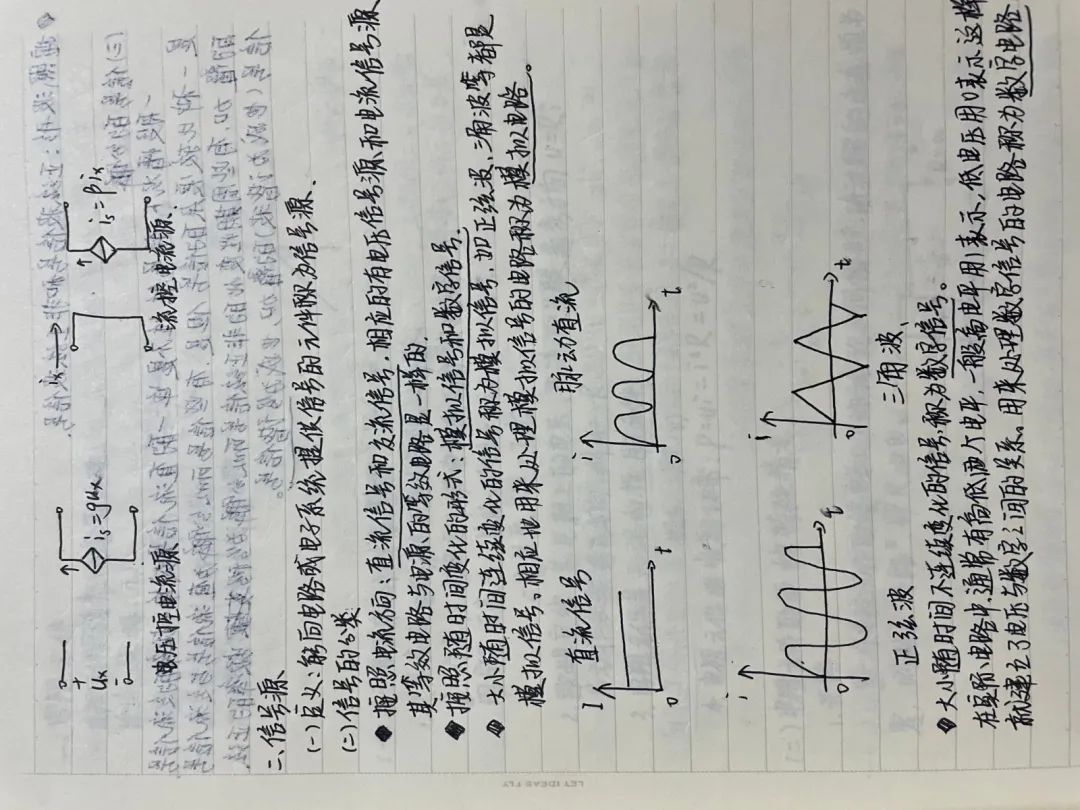 iₓ
+
uₓ
-
iₛ=guₓ
iₛ=βiₓ
电压控电流源
流控电流源
二、信号源
(一)定义:能向电路或电子系统提供信号的元件称为信号源.
(二)信号的分类
按照电流方向:直流信号和交流信号,相应的有电压信号源和电流信号源
其等效电路与电源的等效电路是一样的.
按照随时间变化的形式:模拟信号和数字信号.
大小随时间连续变化的信号称为模拟信号,如正弦波、三角波等都是
模拟信号。相应地用来处理模拟信号的电路称为模拟电路。
直流信号
脉动直流
I
0
t
i
0
t
i
0
t
i
0
t
正弦波
三角波
大小随时间不连续变化的信号称为数字信号。
在 电路中通常有高低两个电平,一般高电平用1表示,低电压用0表示这样
就建立了电压与数字之间的关系。用来处理数字信号的电路称为数字电路
LET IDEAS FLY